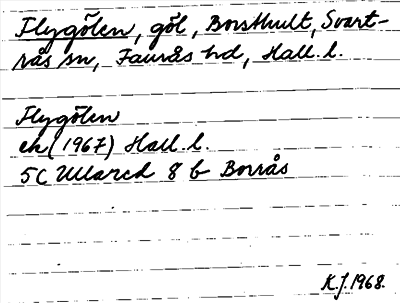 Flygölen, göl, Borsthult, Svart-
rås sn, Faurås hd, Hall. l.
Flygölen
ek (1967) Hall. l.
5C Ullared 8 b Borrås
K.J. 1968.